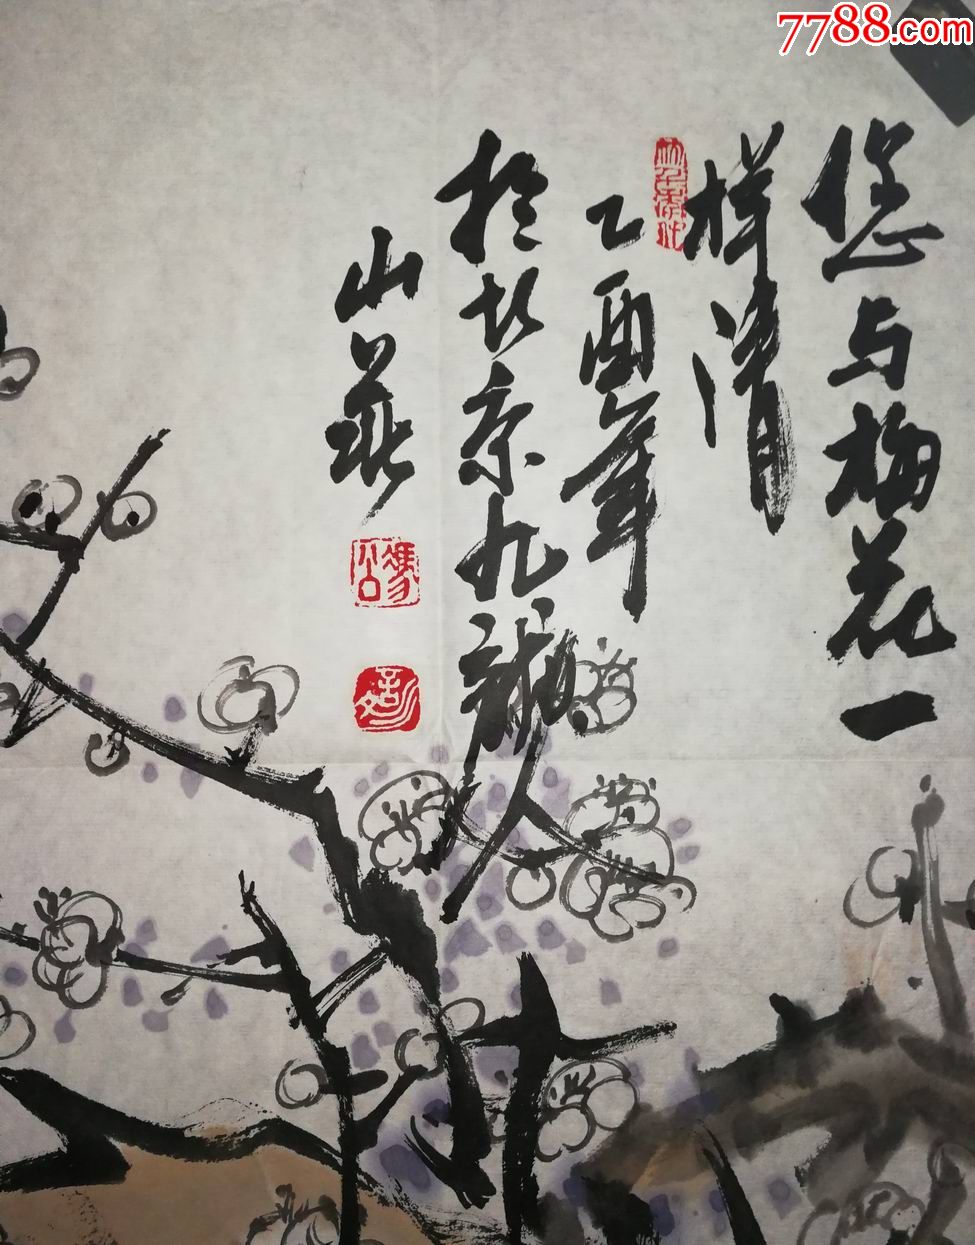 7788.com
您与梅花一
样清
乙酉年
于北京九龙
山庄